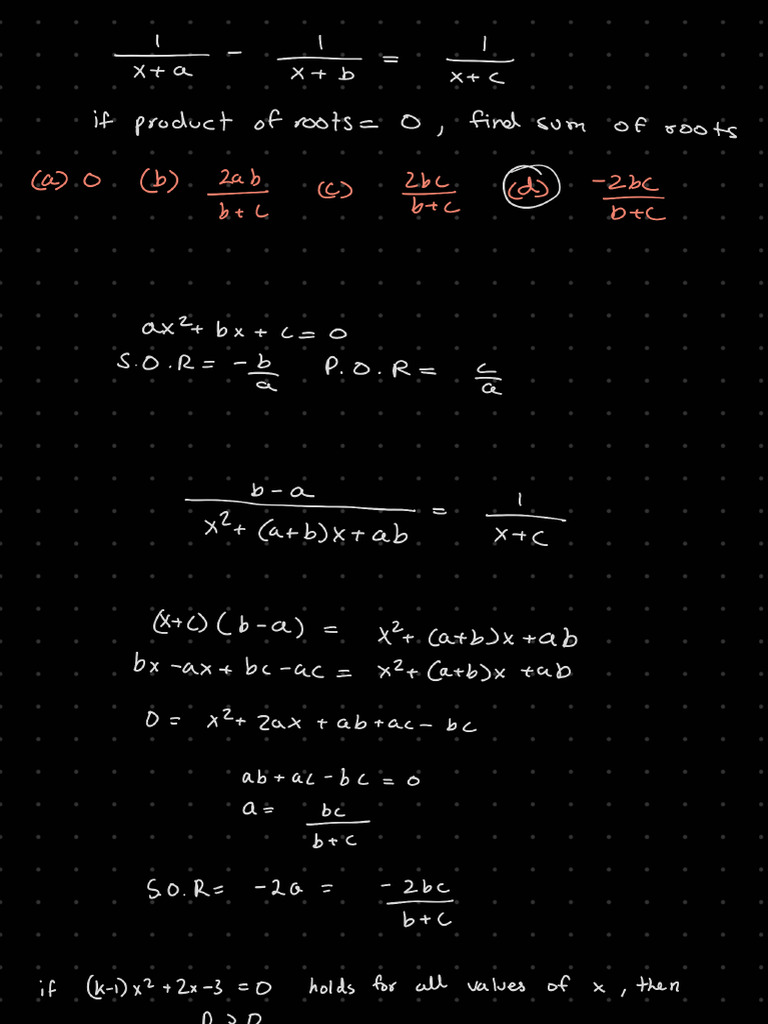 1/(x+a) - 1/(x+b) = 1/(x+c)
if product of roots = 0, find sum of roots
(a) 0 (b) 2ab/(b+c) (c) 2bc/(b+c) (d) -2bc/(b+c)
ax²+ bx + c = 0
S.O.R = -b/a P.O.R = c/a
(b-a)/(x²+ (a+b)x + ab) = 1/(x+c)
(x+c)(b-a) = x²+ (a+b)x + ab
bx - ax + bc - ac = x²+ (a+b)x + ab
0 = x²+ 2ax + ab + ac - bc
ab + ac - bc = 0
a = bc/(b+c)
S.O.R = -2a = -2bc/(b+c)
if (k-1)x² + 2x - 3 = 0 holds for all values of x, then